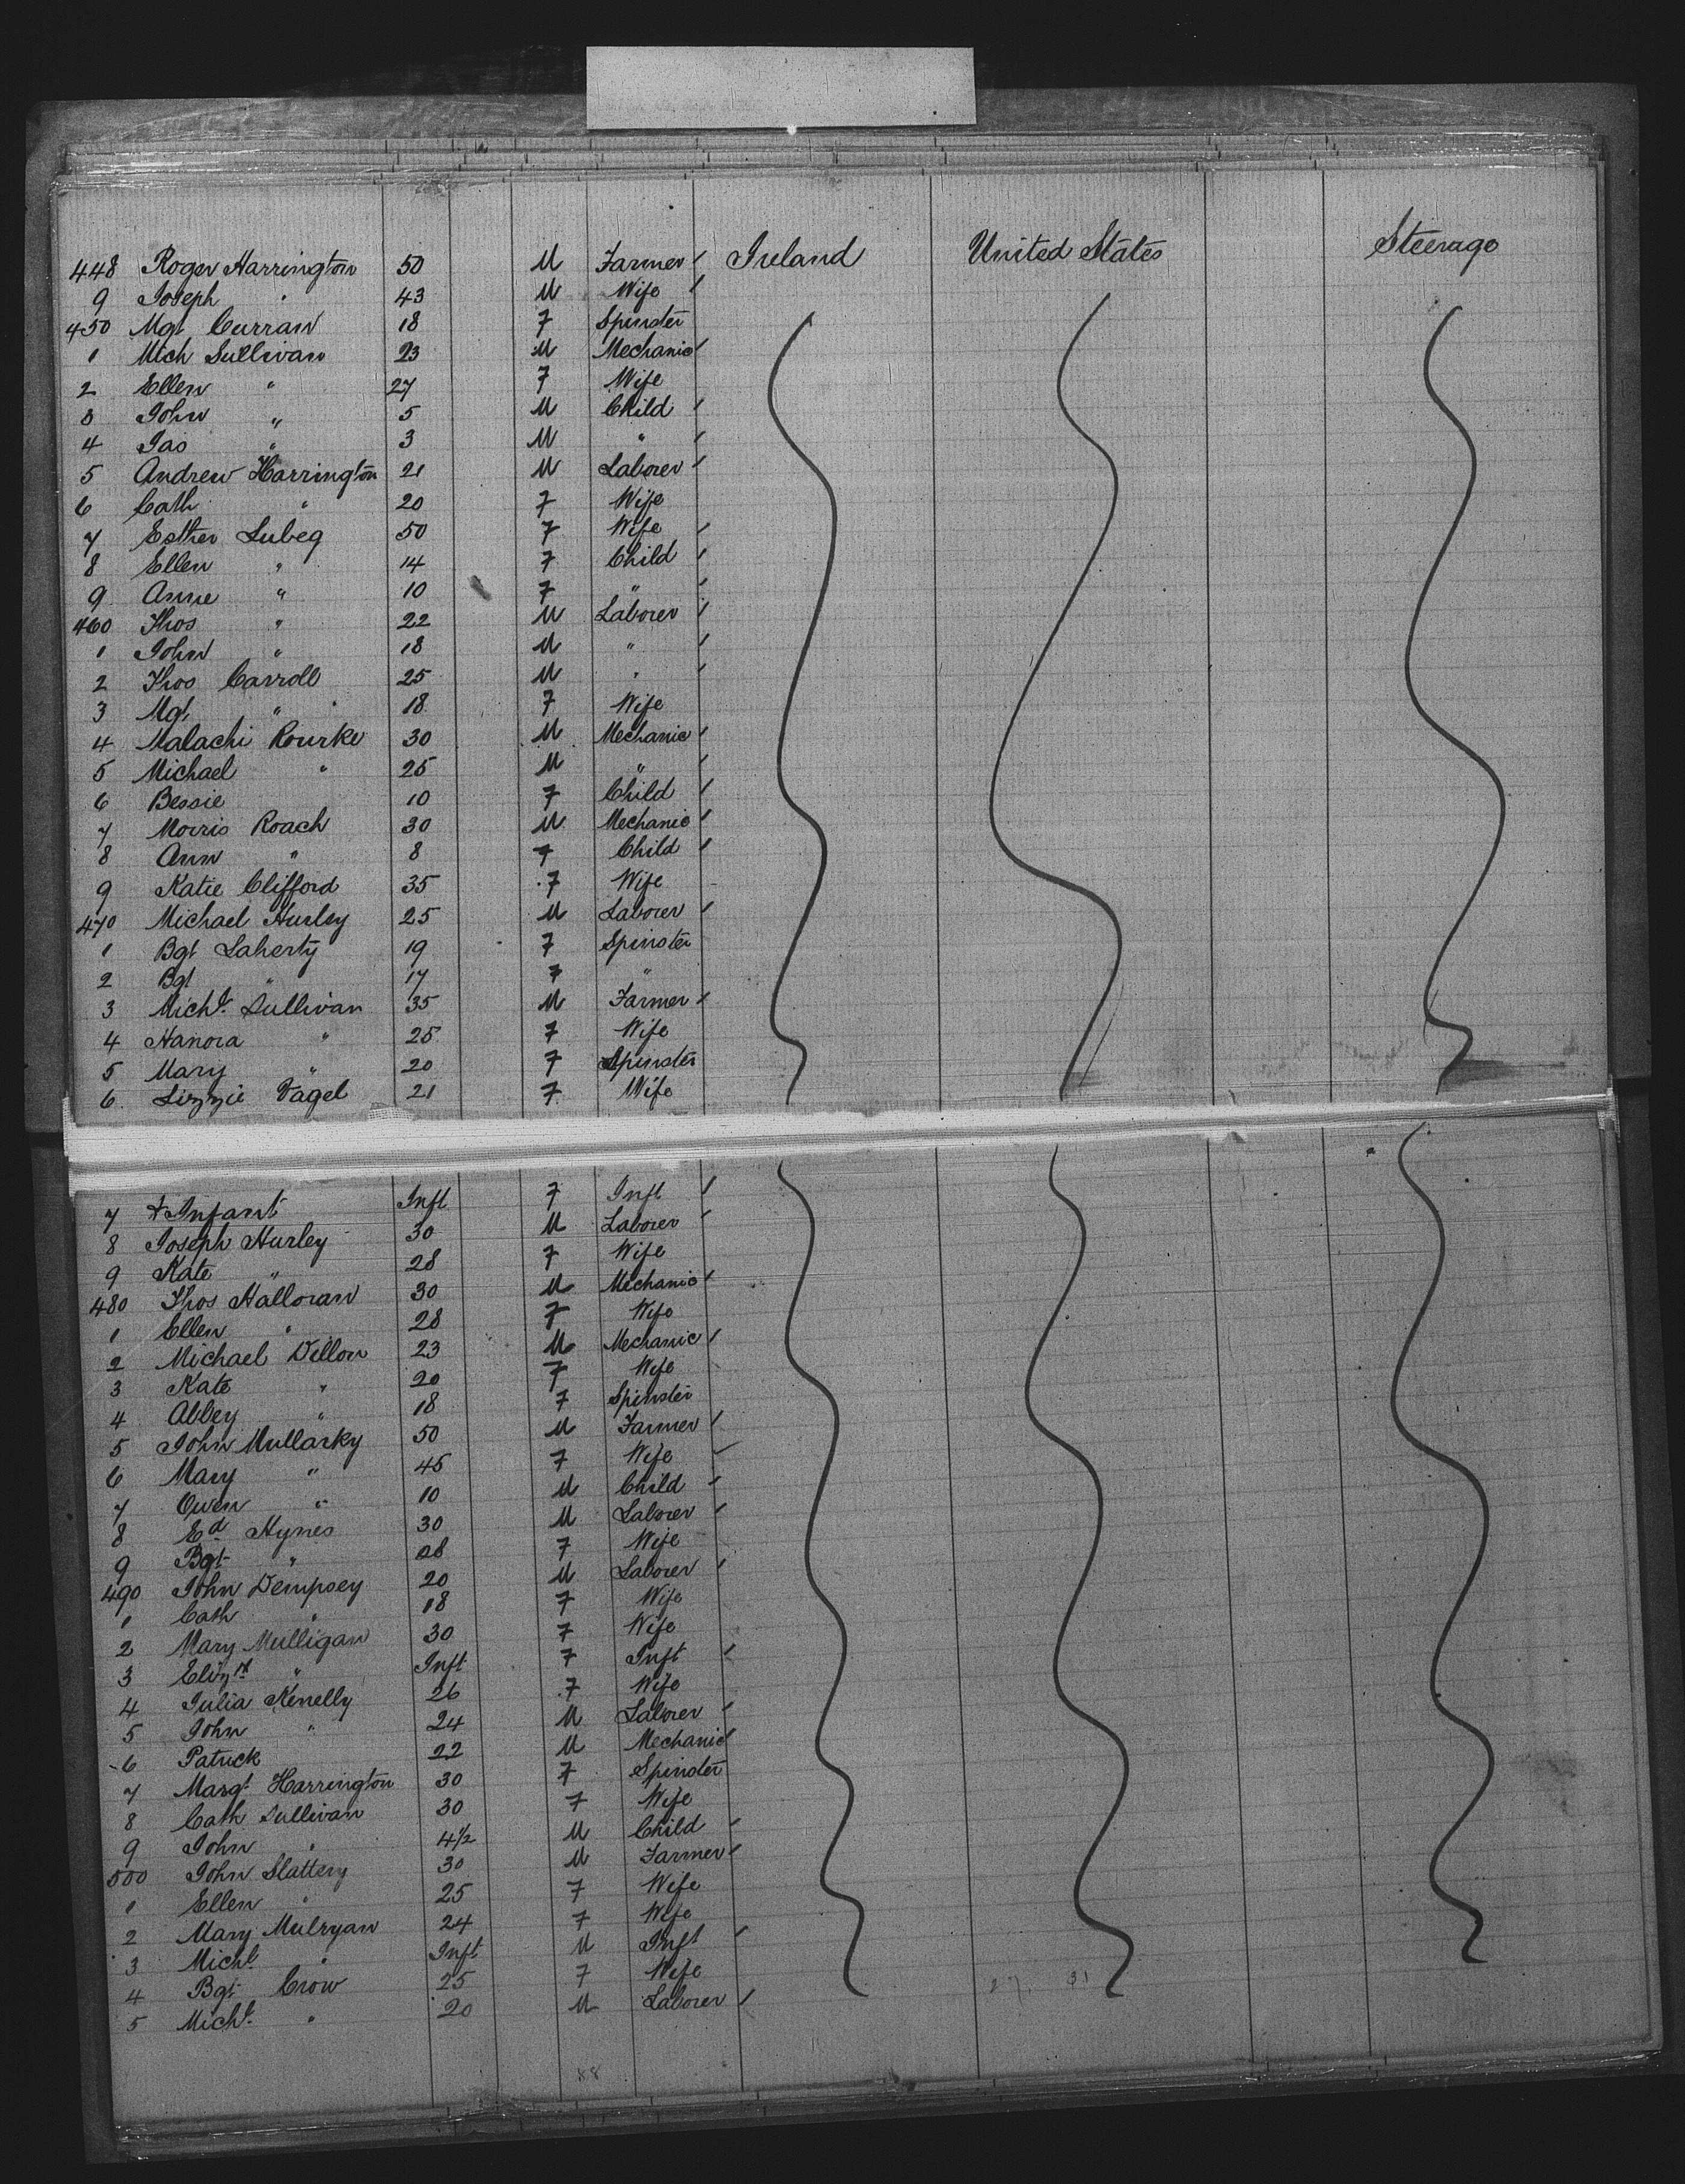 448 Roger Harrington 50 M Farmer Ireland United States Steerage
9 Joseph " 43 M Wife
450 Mgt Curran 18 F Spinster
1 Mich Sullivan 23 M Mechanic
2 Ellen " 27 F Wife
3 John " 5 M Child
4 Jas " 3 M "
5 Andrew Harrington 21 M Laborer
6 Cath " 20 F Wife
7 Esther Lubeg 50 F Wife
8 Ellen " 14 F Child
9 Anne " 10 F "
460 Thos " 22 M Laborer
1 John " 18 M "
2 Thos Carroll 25 M "
3 Mgt " 18 F Wife
4 Malachi Rourke 30 M Mechanic
5 Michael " 25 M "
6 Bessie 10 F Child
7 Morris Roach 30 M Mechanic
8 Ann " 8 F Child
9 Katie Clifford 35 F Wife
470 Michael Hurley 25 M Laborer
1 Bgt Laherty 19 F Spinster
2 Bgt " 17 F "
3 Michl Sullivan 35 M Farmer
4 Hanora " 25 F Wife
5 Mary " 20 F Spinster
6 Lizzie Vagel 21 F Wife
7 + Infant Inft F Inft
8 Joseph Hurley 30 M Laborer
9 Kate " 28 F Wife
480 Thos Halloran 30 M Mechanic
1 Ellen " 28 F Wife
2 Michael Dillon 23 M Mechanic
3 Kate " 20 F Wife
4 Abbey " 18 F Spinster
5 John Mullarky 50 M Farmer
6 Mary " 45 F Wife
7 Owen " 10 M Child
8 Ed Hynes 30 M Laborer
9 Bgt " 28 F Wife
490 John Dempsey 20 M Laborer
1 Cath " 18 F Wife
2 Mary Mulligan 30 F Wife
3 Elizth " Inft F Inft
4 Julia Kenelly 26 F Wife
5 John " 24 M Laborer
6 Patrick 22 M Mechanic
7 Margt Harrington 30 F Spinster
8 Cath Sullivan 30 F Wife
9 John " 4 1/2 M Child
500 John Slattery 30 M Farmer
1 Ellen " 25 F Wife
2 Mary Mulryan 24 F Wife
3 Michl " Inft M Inft
4 Bgt Crow 25 F Wife
5 Michl " 20 M Laborer
88